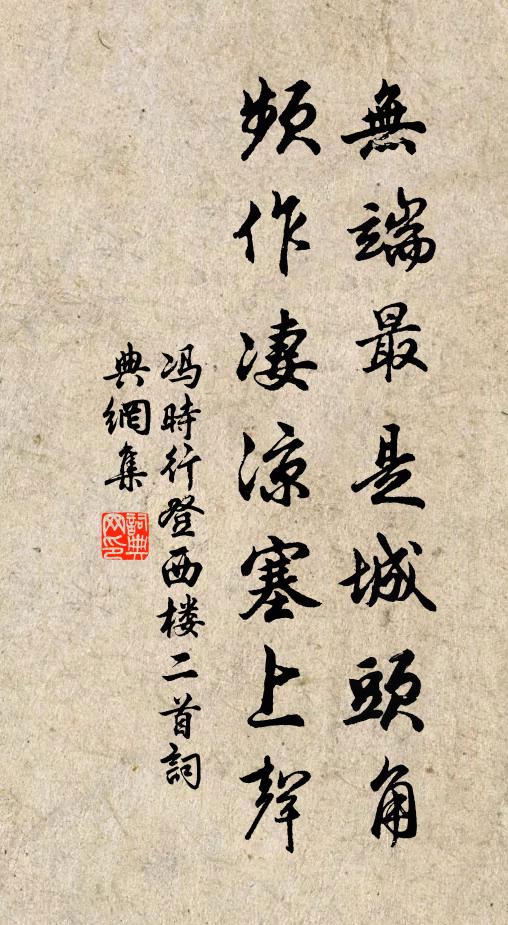 無端最是城頭角
頻作凄涼塞上聲
冯時行登西楼二首詞
典網集
詞典
网印